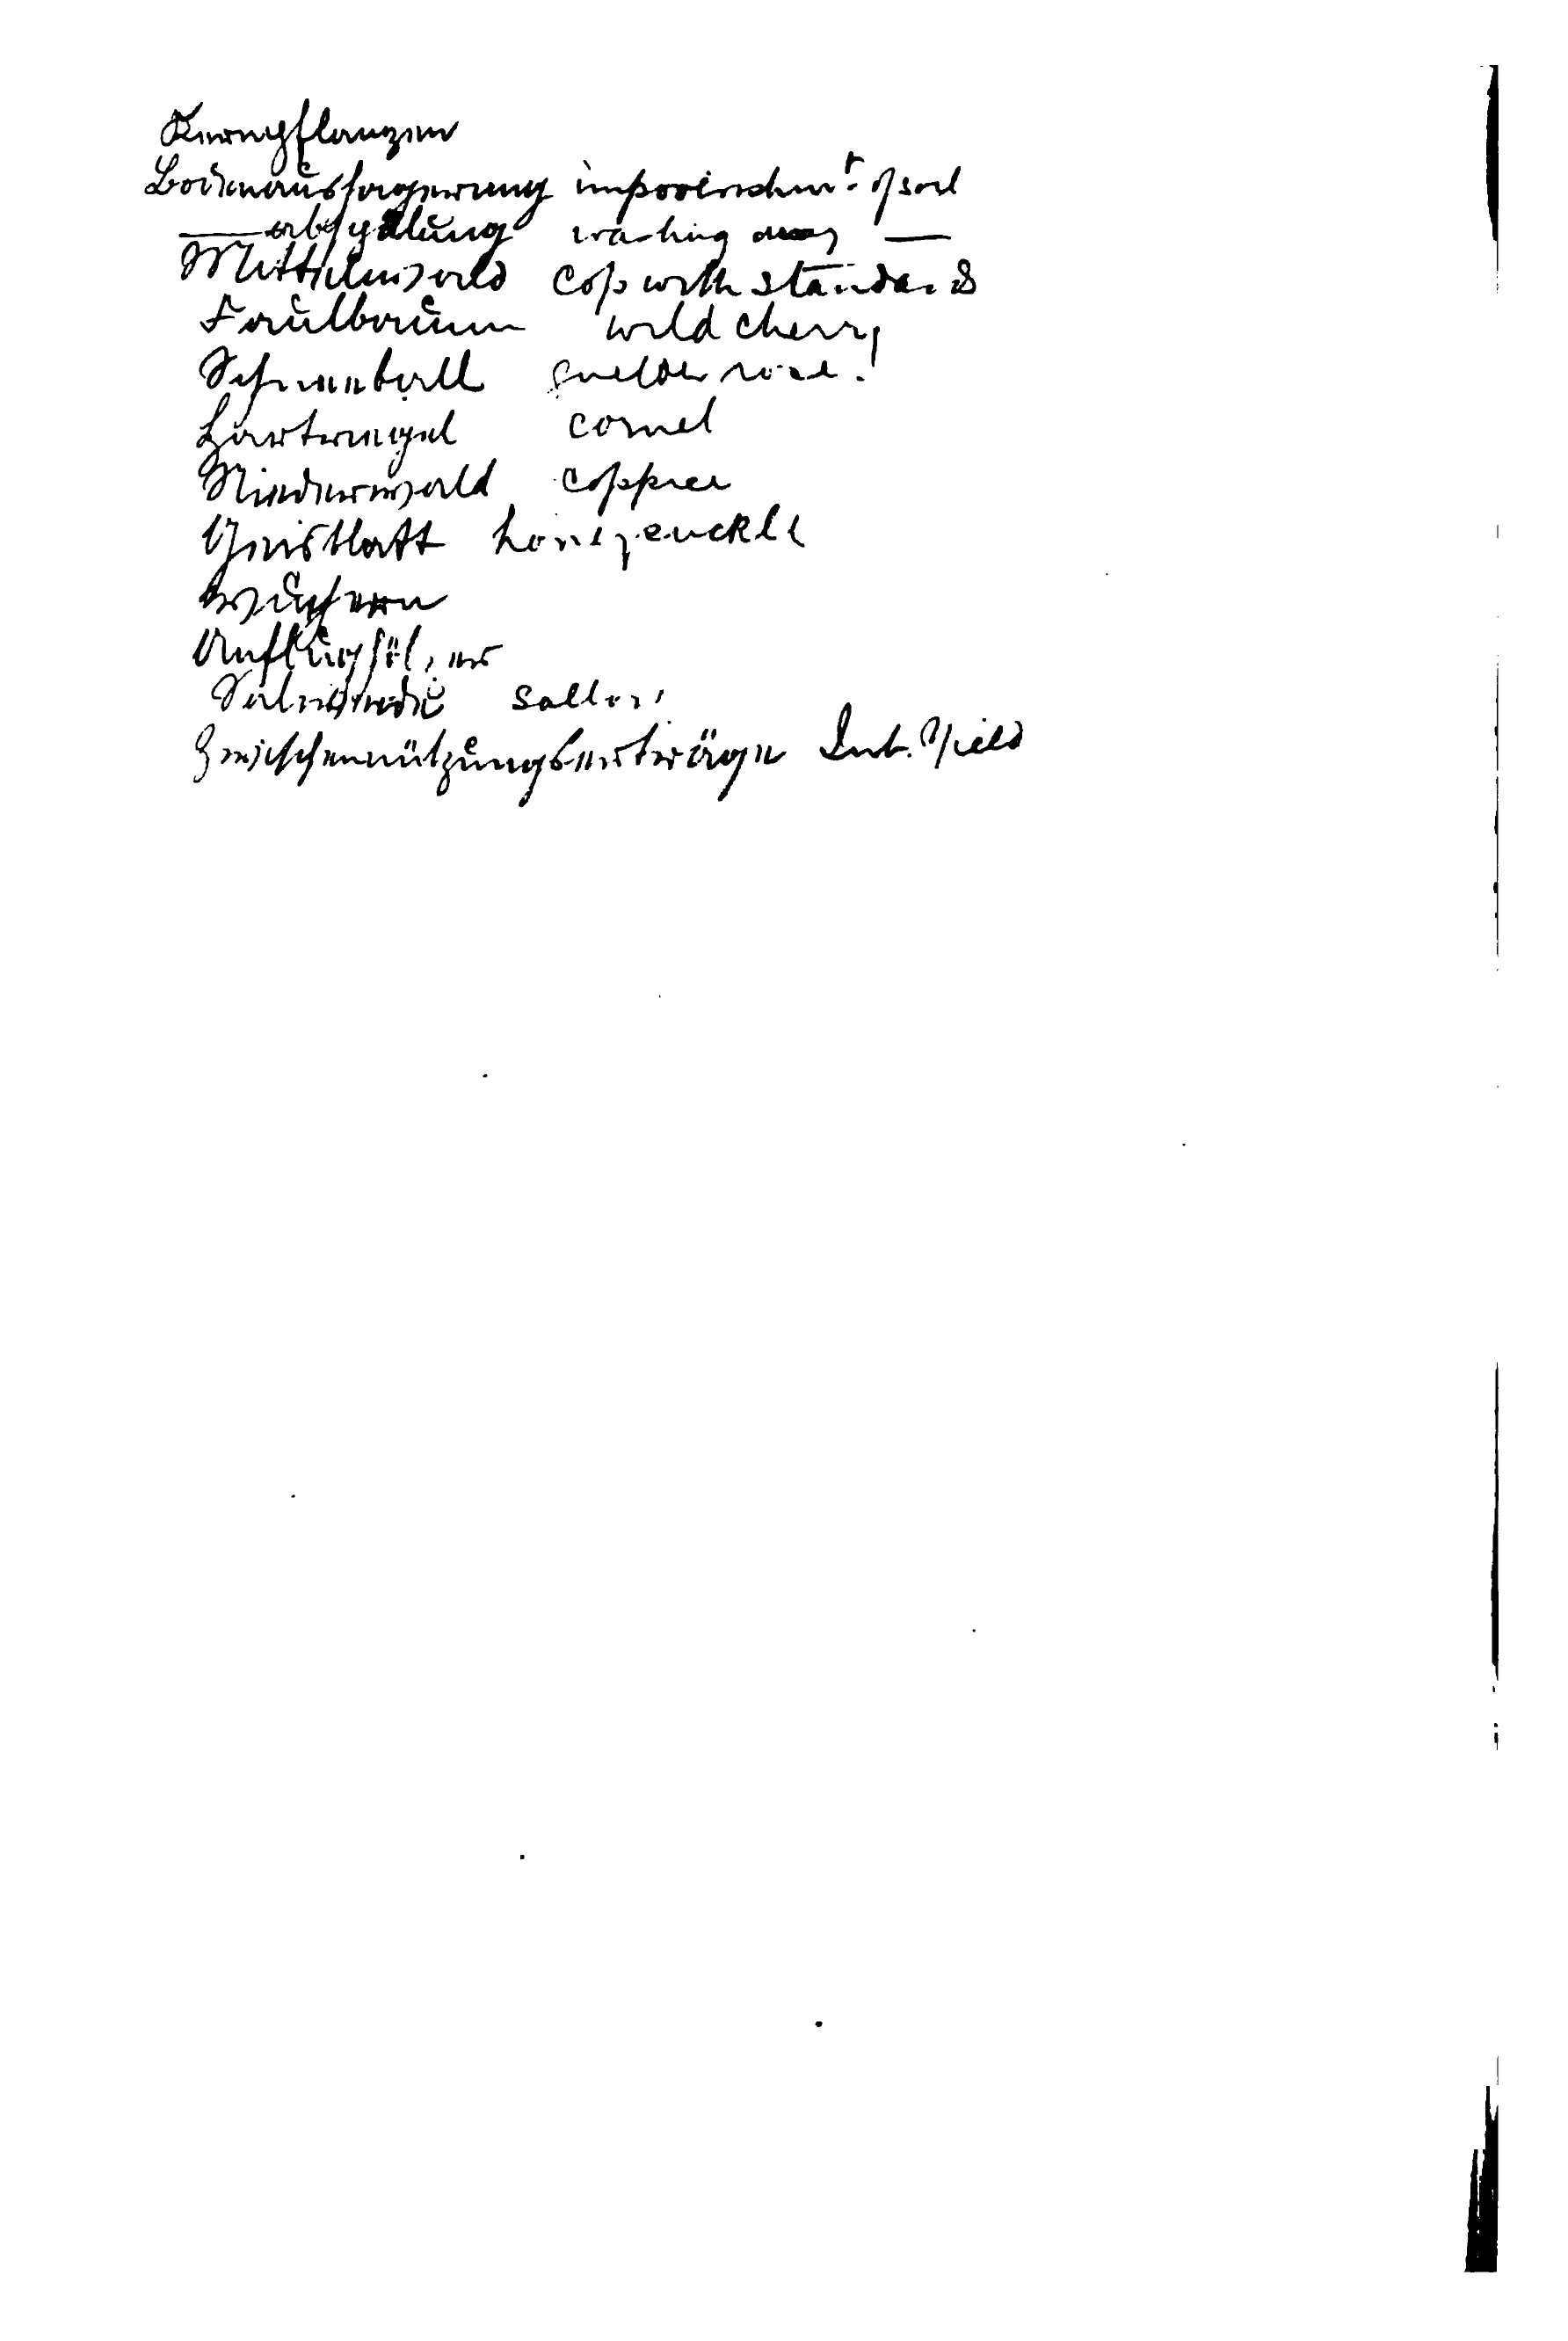 Kernpflanzen
Bodenaushagerung impoverishmt. of soil
— abspülung washing away —
Mittelwald Cop with standards
Faulbaum wild cherry
Schneeball guelder rose!
Hartriegel cornel
Niederwald coppice
Geisblatt honeysuckle
wuchern
Salweide sallow
Zwischennützungserträge Int. Yield